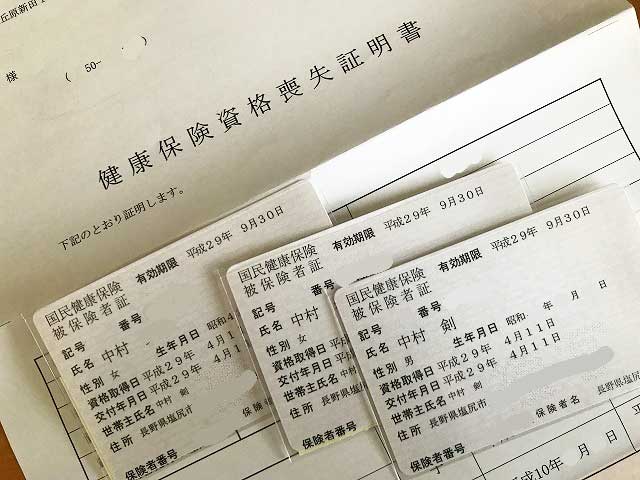 丘原新田
様
( 50- )
健康保険資格喪失証明書
下記のとおり証明します。
国民健康保険
被保険者証
有効期限 平成29年 9月30日
記号 番号
氏名 中村
性別 女 生年月日 昭和4
資格取得日 平成29年 4月1
交付年月日 平成29年 4月1
世帯主氏名 中村 剣
住所 長野県塩尻市
保険者
国民健康保険
被保険者証
有効期限 平成29年 9月30日
記号 番号
氏名 中村
性別 女 生年月日
資格取得日 平成
交付年月日 平成29
世帯主氏名 中村
住所 長野県塩尻市
保険者番号
国民健康保険
被保険者証
有効期限 平成29年 9月30日
記号 番号
氏名 中村 剣
性別 男 生年月日 昭和 年 月 日
資格取得日 平成29年 4月11日
交付年月日 平成29年 4月11日
世帯主氏名 中村 剣
住所 長野県塩尻市
保険者番号
保険者名 長野県塩
年 月 日
平成10年 月 日